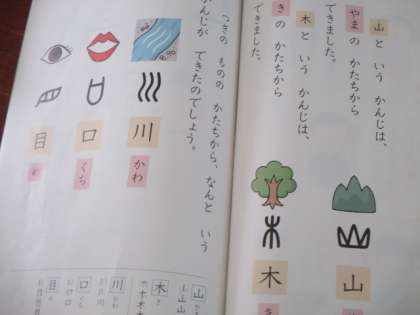 山 と いう かんじは、
やまの かたちから
できました。
木 と いう かんじは、
きの かたちから
できました。
山
木
つぎの ものの かたちから、なんと いう
かんじが できたのでしょう。
川
かわ
口
くち
目
め
山
木
き
川
かわ
口
くち
目